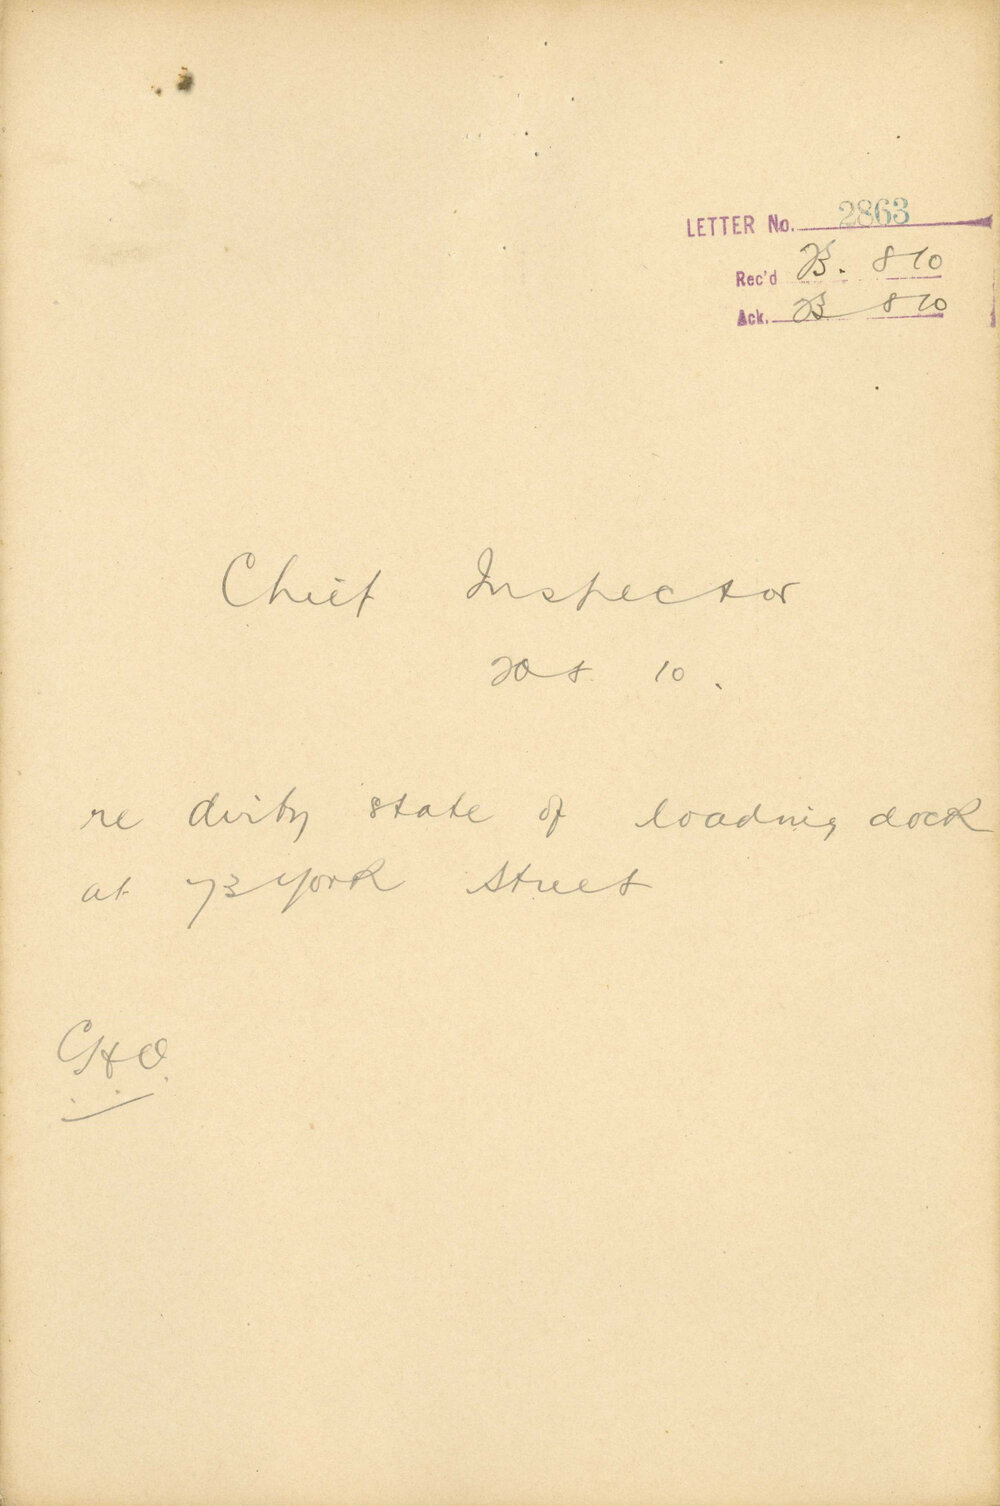 LETTER No. 2863
Rec'd B. 8 10
Ack. B 8 10
Chief Inspector
10.
re dirty state of loading dock
at 73 York Street
CHO